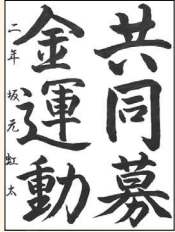 共同募
金運動
二年 坂元虹太